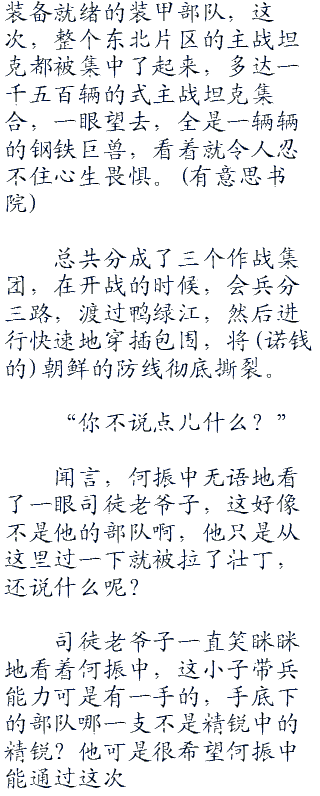 装备就绪的装甲部队，这
次，整个东北片区的主战坦
克都被集中了起来，多达一
千五百辆的式主战坦克集
合，一眼望去，全是一辆辆
的钢铁巨兽，看着就令人忍
不住心生畏惧。(有意思书
院)
总共分成了三个作战集
团，在开战的时候，会兵分
三路，渡过鸭绿江，然后进
行快速地穿插包围，将(诺钱
的)朝鲜的防线彻底撕裂。
“你不说点儿什么？”
闻言，何振中无语地看
了一眼司徒老爷子，这好像
不是他的部队啊，他只是从
这里过一下就被拉了壮丁，
还说什么呢？
司徒老爷子一直笑眯眯
地看着何振中，这小子带兵
能力可是有一手的，手底下
的部队哪一支不是精锐中的
精锐？他可是很希望何振中
能通过这次